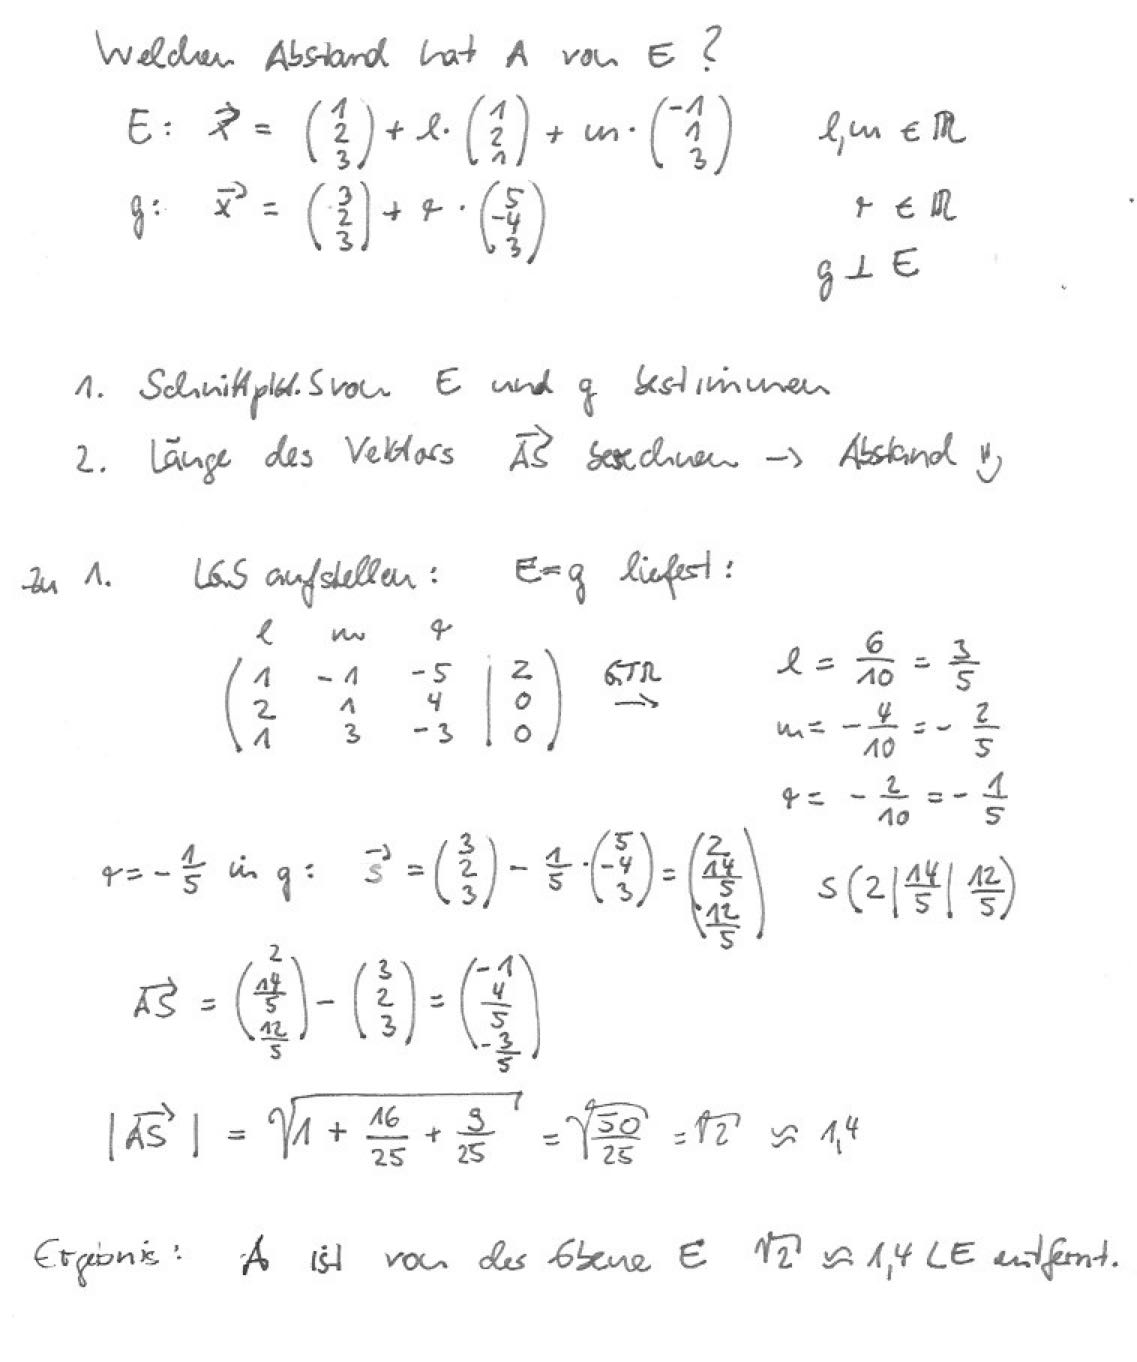 Welchen Abstand hat A von E ?
E: x⃗ = (1 2 3) + l · (1 2 1) + m · (-1 1 3)   l, m ∈ ℝ
g: x⃗ = (3 2 3) + r · (5 -4 3)   r ∈ ℝ
g ⊥ E
1. Schnittpkt. S von E und g bestimmen
2. Länge des Vektors A⃗S⃗ berechnen → Abstand
zu 1. LGS aufstellen: E=g liefert:
l m r
(1 -1 -5 | 2   GTR →   l = 6/10 = 3/5
2 1 4 | 0   m = - 4/10 = - 2/5
1 3 -3 | 0)   r = - 2/10 = - 1/5
r = - 1/5 in g: s⃗ = (3 2 3) - 1/5 · (5 -4 3) = (2 14/5 12/5)   S (2 | 14/5 | 12/5)
A⃗S⃗ = (2 14/5 12/5) - (3 2 3) = (-1 4/5 -3/5)
|A⃗S⃗| = √(1 + 16/25 + 9/25) = √(50/25) = √2 ≈ 1,4
Ergebnis: A ist von der Ebene E √2 ≈ 1,4 LE entfernt.